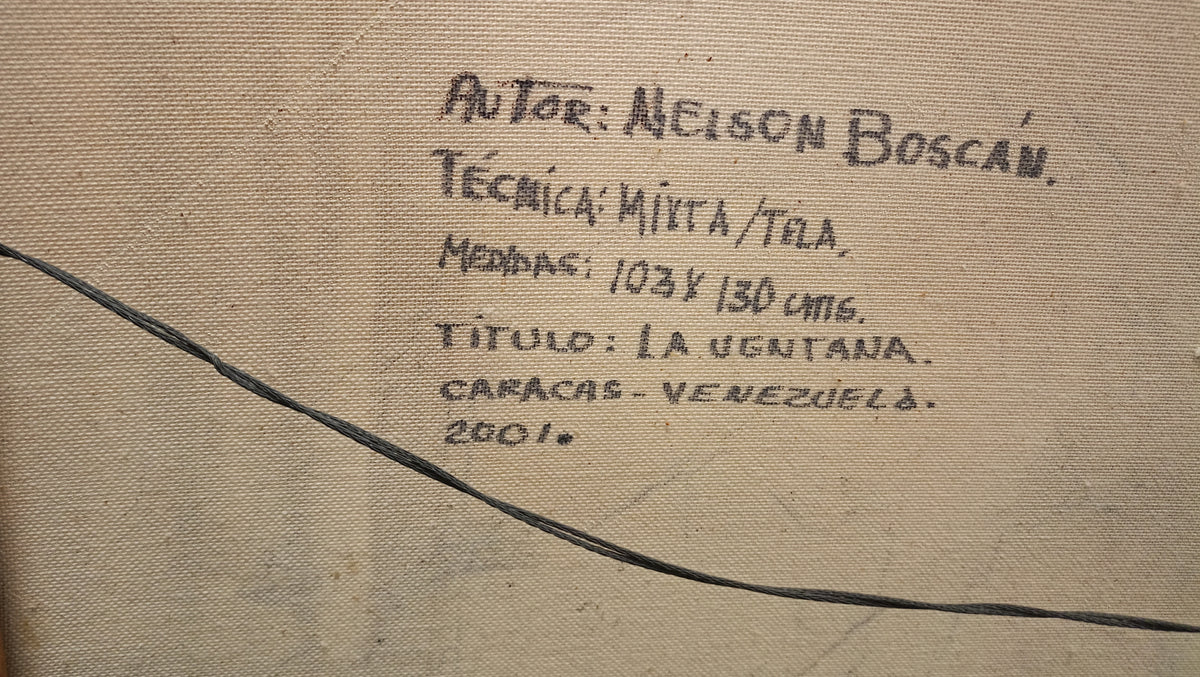 AUTOR: NELSON BOSCÁN.
TÉCNICA: MIXTA/TELA.
MEDIDAS: 103 X 130 CMTS.
TÍTULO: LA VENTANA.
CARACAS - VENEZUELA.
2001.